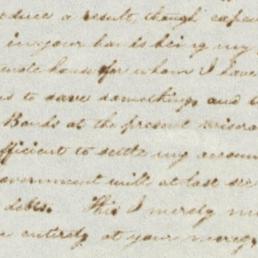 oduce a result, though
in your hands being my
house for whom I have
s to save something, and
Bonds at the present misera
fficient to settle my accoun
overnment will at last see
debts. This I merely m
e entirely at your mercy,